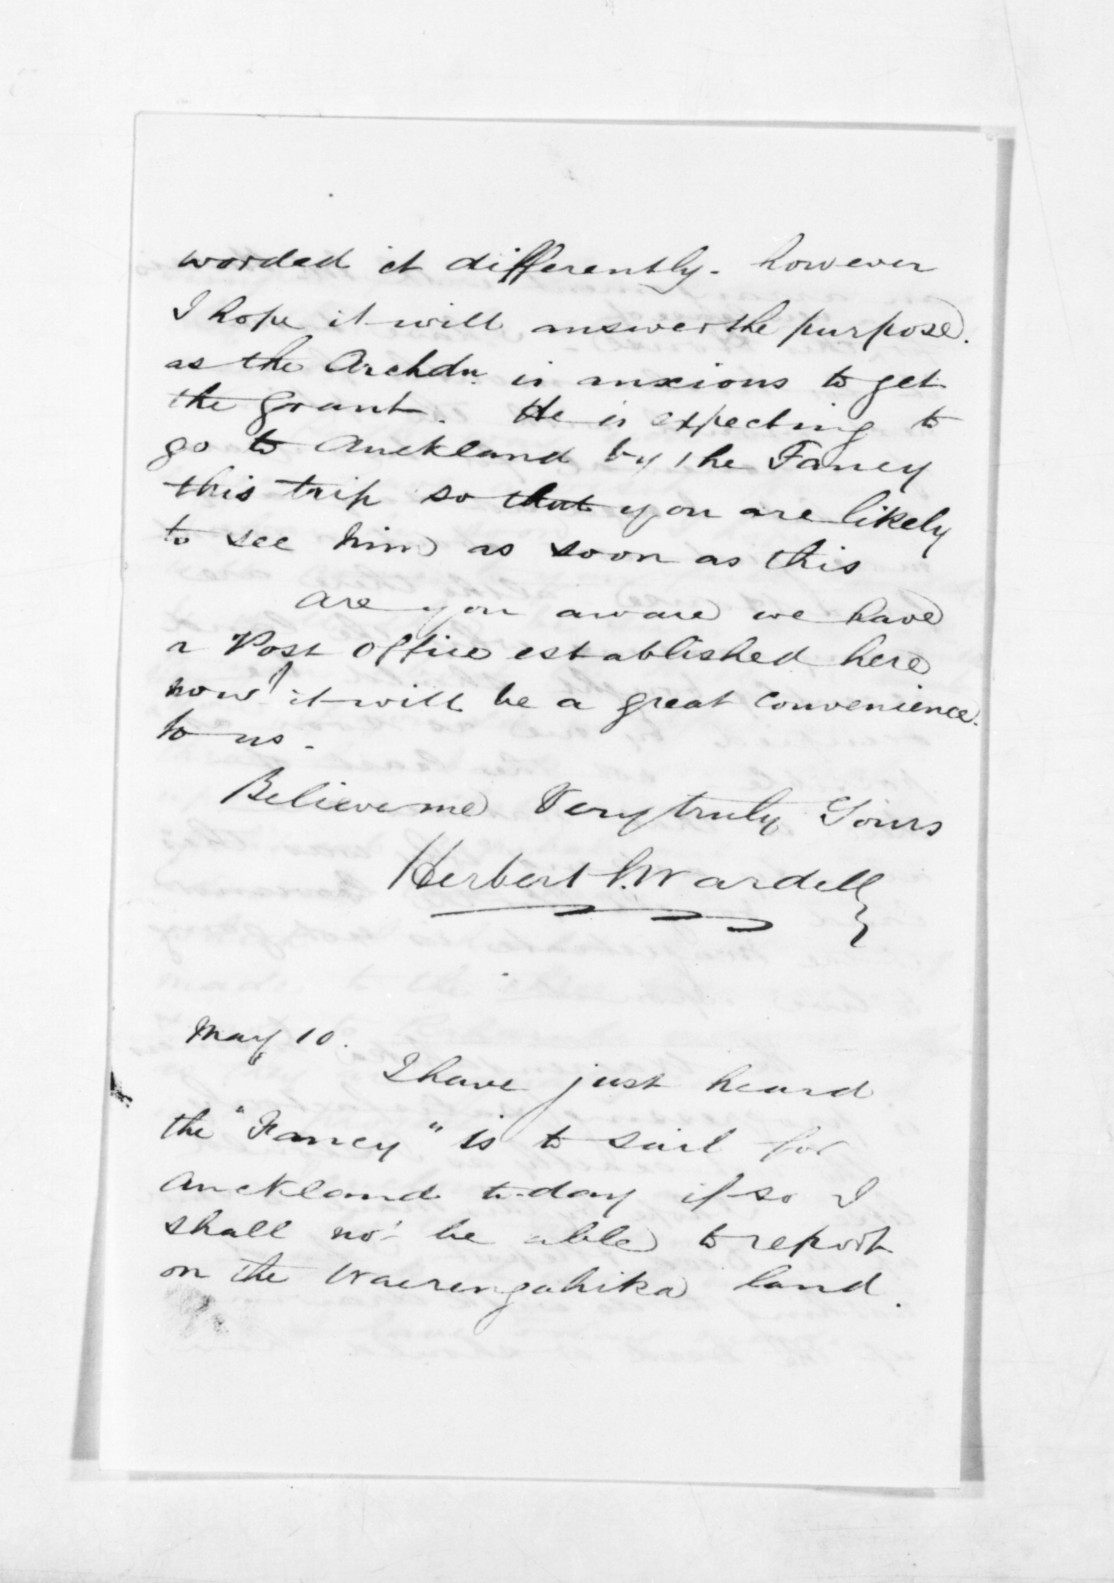 worded it differently. however
I hope it will answer the purpose.
as the Archdn. is anxious to get
the grant. He is expecting to
go to Auckland by the Fancy
this trip so that you are likely
to see him as soon as this
Are you aware we have
a Post Office established here
now! it will be a great convenience.
to us.
Believe me Very truly Yours
Herbert S. Wardell
May 10.
I have just heard
the "Fancy" is to sail for
Auckland to-day if so I
shall not be able to report
on the Waerengahika land.